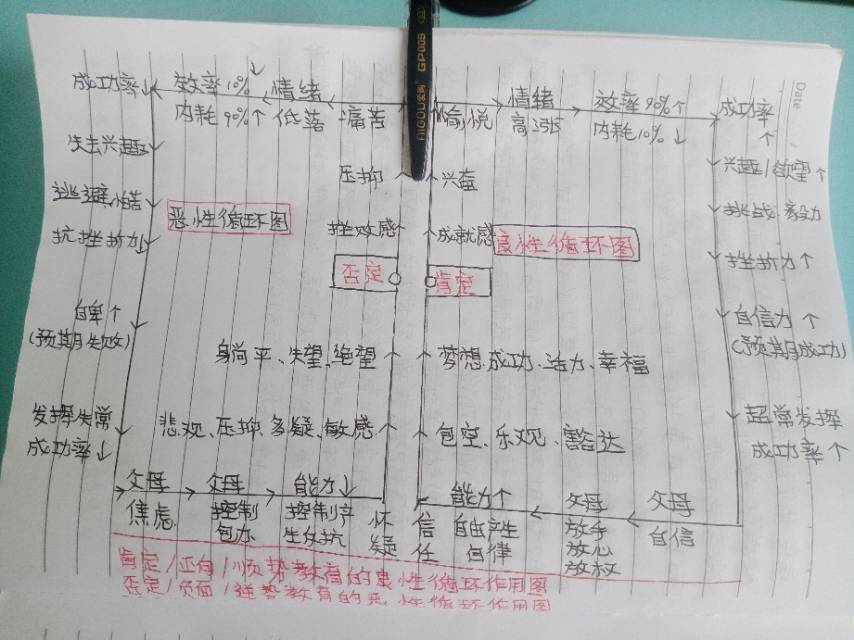 GP009
Date
成功率↓ 效率10%↓ 情绪 愉悦 情绪 效率90%↑ 成功率↑
内耗90%↑ 低落 痛苦 高涨 内耗10%↓
失去兴趣 压抑 兴奋 兴趣/欲望↑
逃避 挑战 毅力
恶性循环图 挫败感 成就感 良性循环图
抗挫折力↓ 挫折力↑
否定 肯定
自卑↑ 自信力↑
(预期失败) (预期成功)
躺平、失望、绝望 梦想、成功、活力、幸福
发挥失常 超常发挥
成功率↓ 成功率↑
悲观、压抑、多疑、敏感 包容、乐观、豁达
父母 父母 能力↓ 能力↑ 父母 父母
焦虑 控制 控制产 怀 信 自由产生 放手 自信
包办 生反抗 疑 任 自律 放心
放权
肯定/正向/顺势教育的良性循环作用图
否定/负面/逆势教育的恶性循环作用图